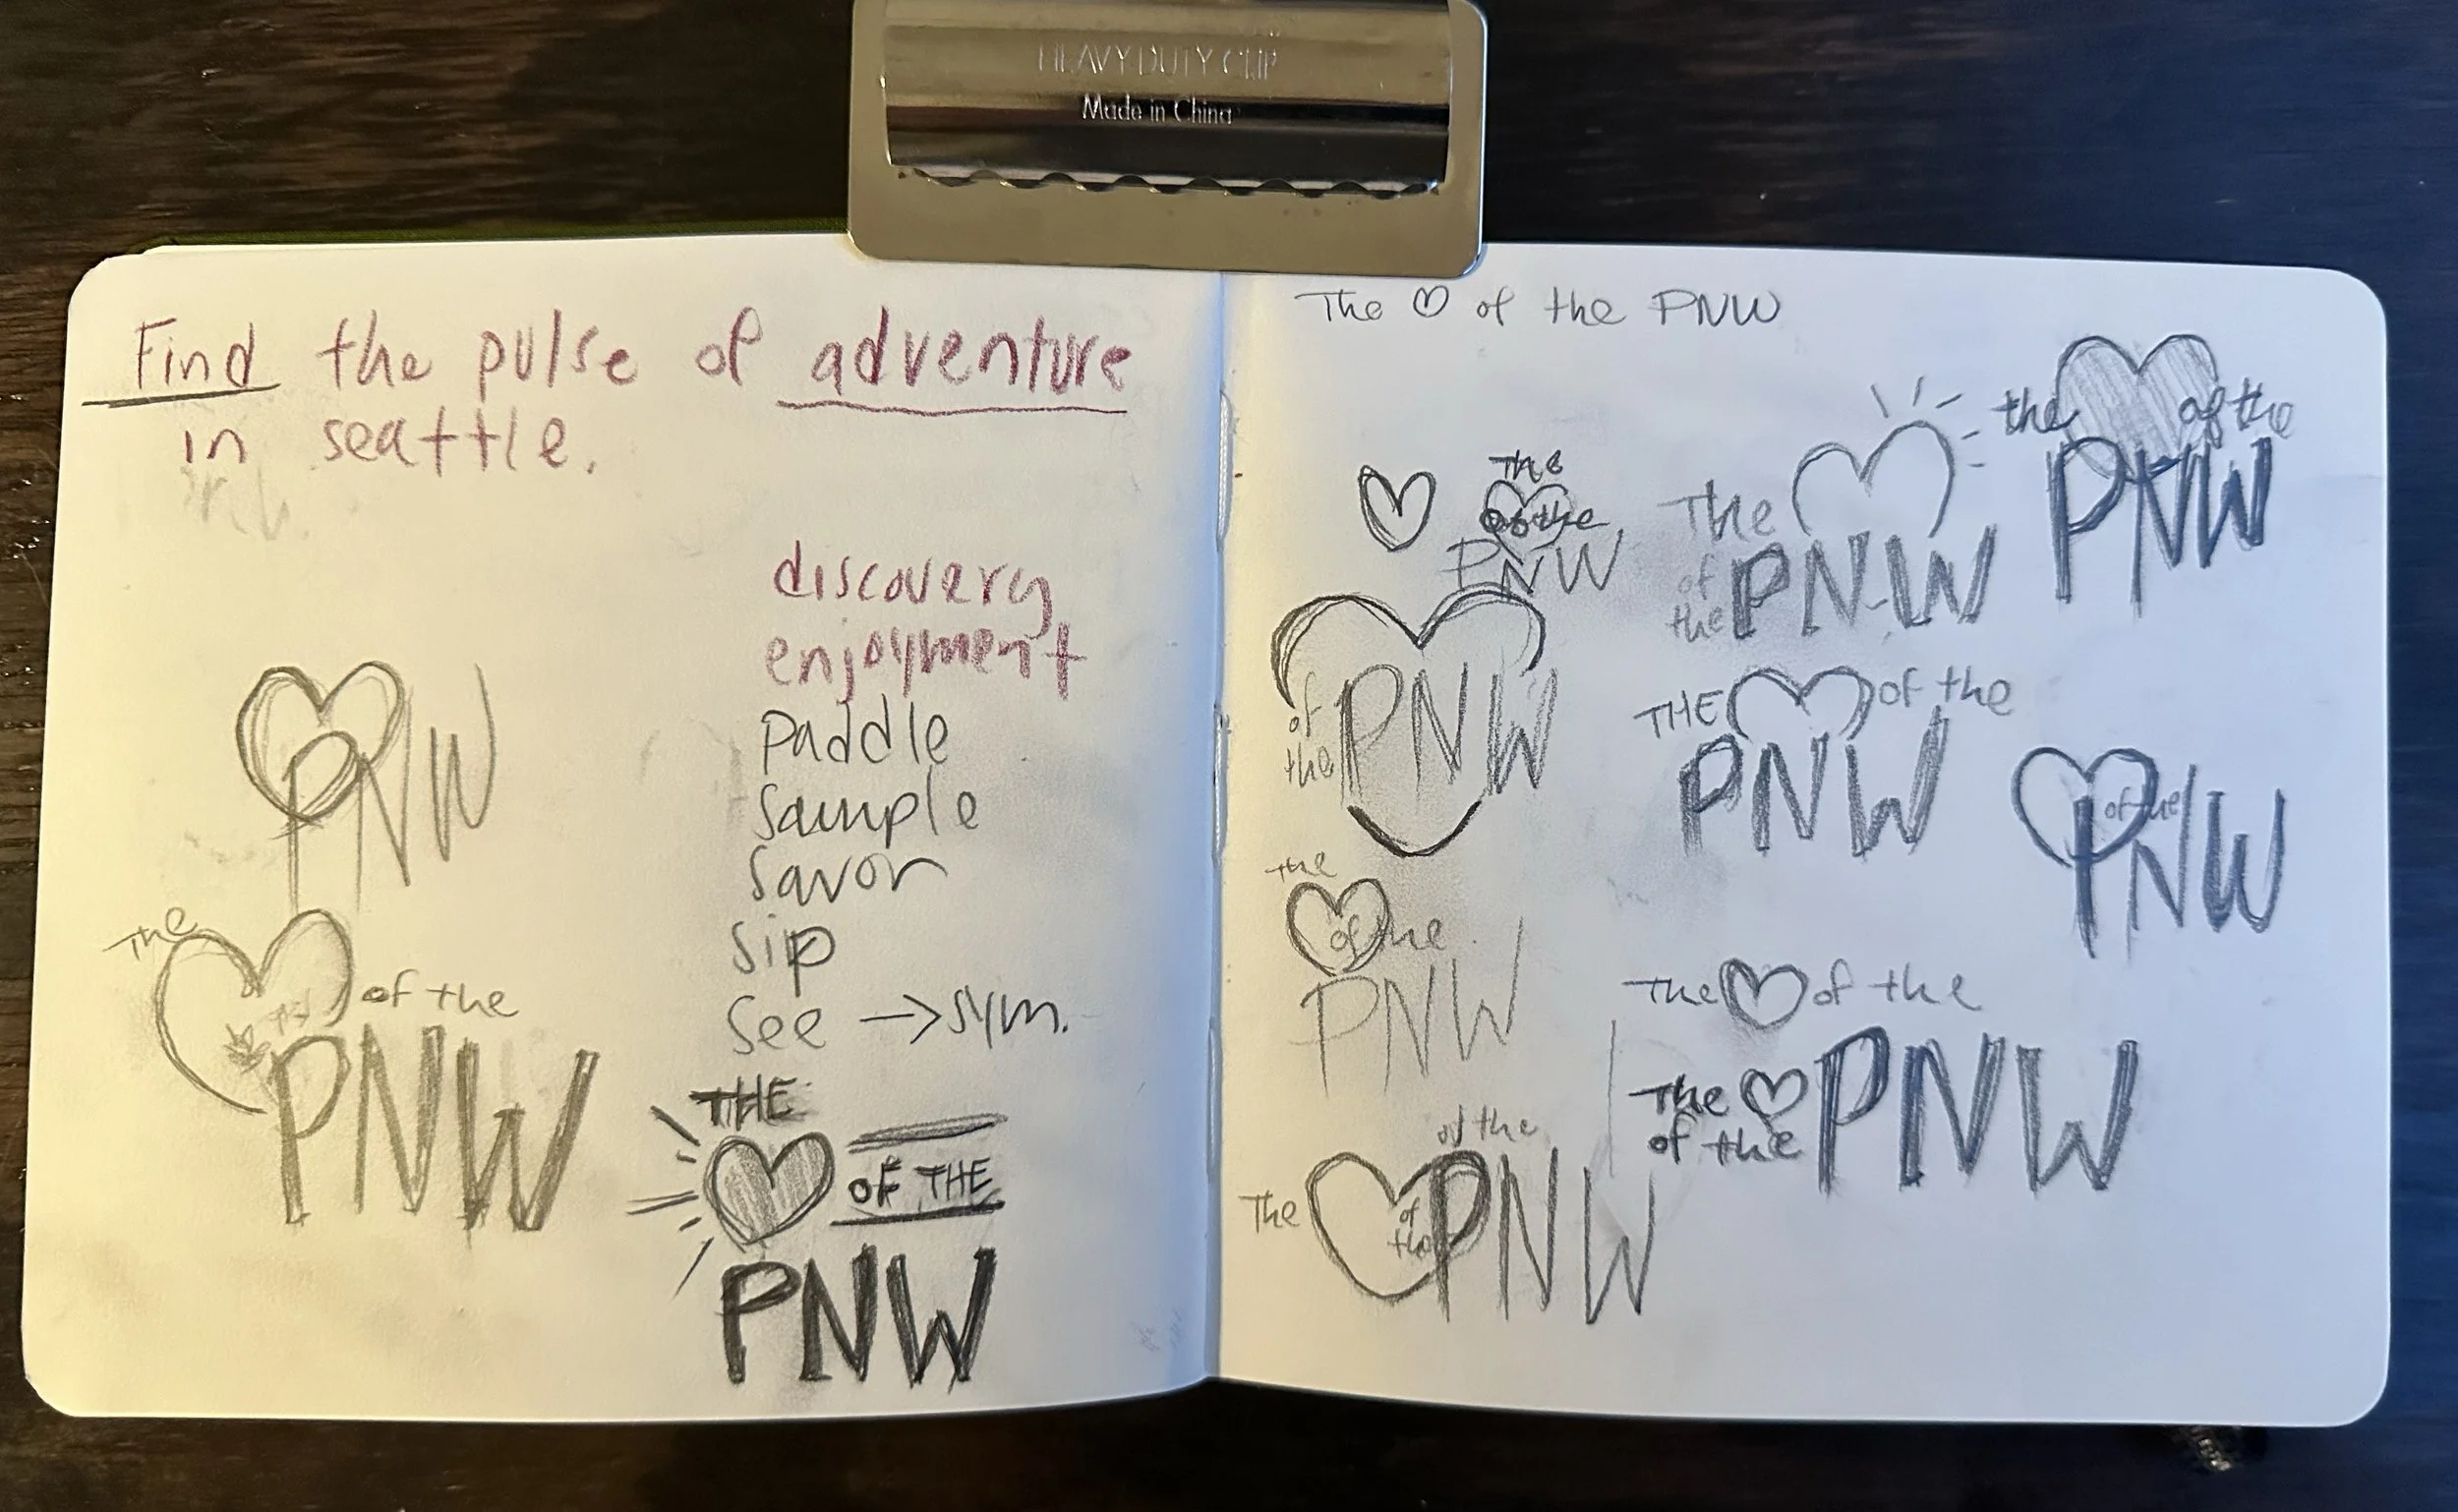 HEAVY DUTY CLIP
Made in China
Find the pulse of adventure
in seattle.
discovery
enjoyment
paddle
sample
savor
sip
see → sym.
PNW
The
of the
PNW
THE
OF THE
PNW
The ♡ of the PNW
The
of the
PNW
The
of
the
PNW
the
of the
PNW
of
the
PNW
THE
of the
PNW
of the
PNW
the
of the
PNW
The ♡ of the
The ♡
of the
PNW
of the
The
of
the
PNW